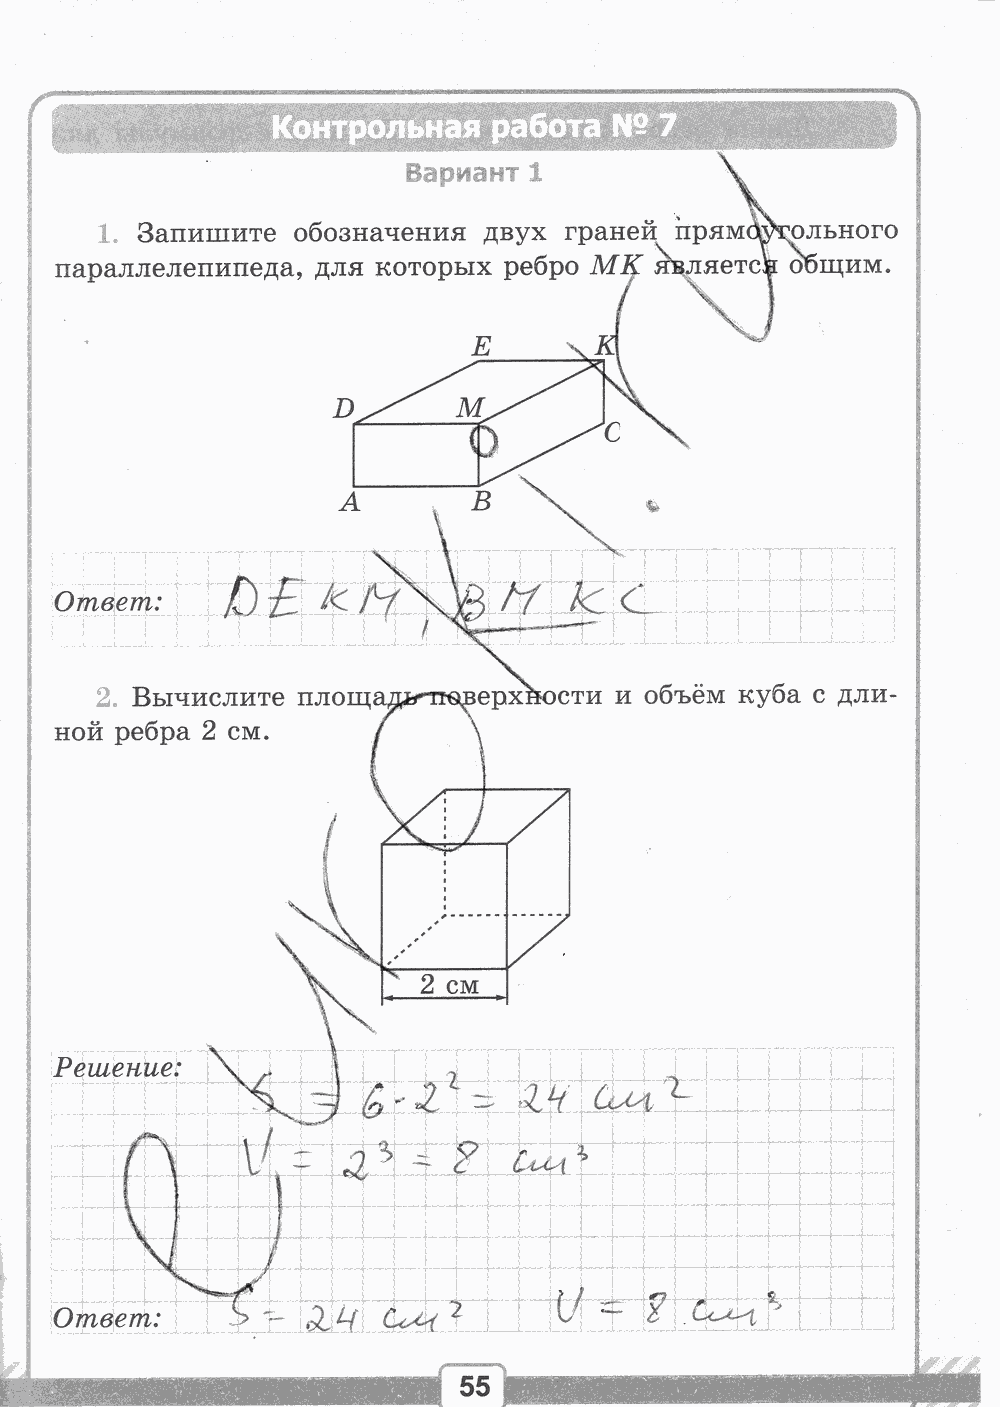 Контрольная работа № 7
Вариант 1
1. Запишите обозначения двух граней прямоугольного
параллелепипеда, для которых ребро MK является общим.
E K
D M
C
A B
Ответ: DEKM, BMKC
2. Вычислите площадь поверхности и объём куба с дли-
ной ребра 2 см.
2 см
Решение:
S = 6·2² = 24 см²
V = 2³ = 8 см³
Ответ: S = 24 см² V = 8 см³
55